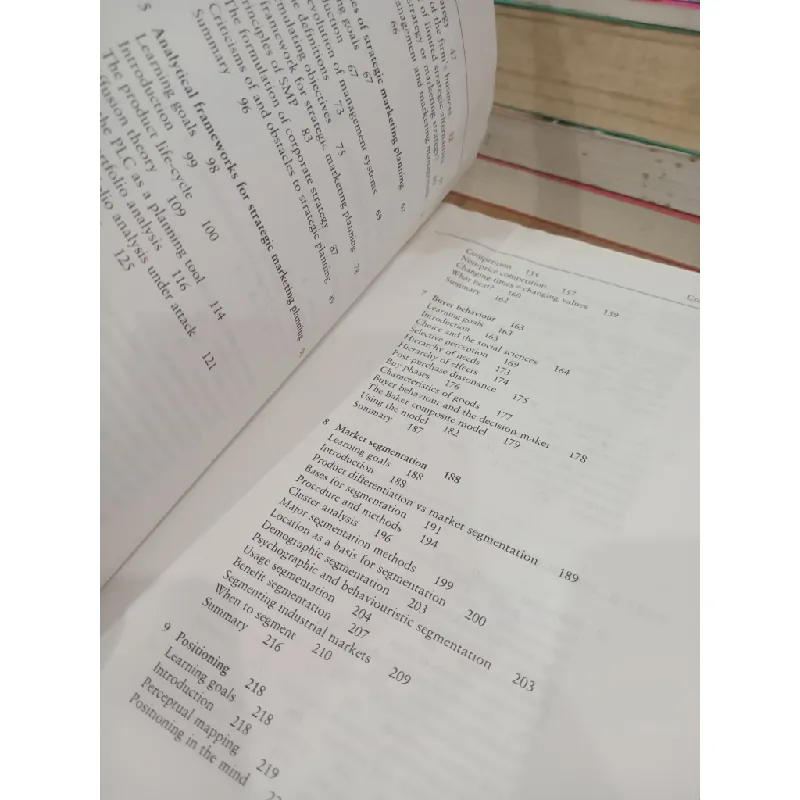 47
of the firm's business
of limited strategic alternatives
strategy or marketing strategy?
management and marketing management
66
es of strategic marketing planning 67
ng goals 67
duction 67
evolution of management systems 69
e definitions 73
mulating objectives 75
framework for strategic marketing planning 78
rinciples of SMP 83
The formulation of corporate strategy 87
Criticisms of and obstacles to strategic planning
Summary 96
5 Analytical frameworks for strategic marketing planning
Learning goals 98
Introduction 99
The product life-cycle 100
ffusion theory 109
he PLC as a planning tool 114
rtfolio analysis 116
lio analysis under attack 121
125
Co
Competition 154
Non-price competition 157
Changing times = changing values 159
What next? 160
Summary 162
7 Buyer behaviour 163
Learning goals 163
Introduction 163
Choice and the social sciences 164
Selective perception 169
Hierarchy of needs 173
Hierarchy of effects 174
Post-purchase dissonance 175
Buy phases 176
Characteristics of goods 177
Buyer behaviour and the decision-maker 178
The Baker composite model 179
Using the model 182
Summary 187
8 Market segmentation 188
Learning goals 188
Introduction 188
Product differentiation vs market segmentation 189
Bases for segmentation 191
Procedure and methods 194
Cluster analysis 196
Major segmentation methods 199
Location as a basis for segmentation 200
Demographic segmentation 203
Psychographic and behaviouristic segmentation 203
Usage segmentation 204
Benefit segmentation 207
Segmenting industrial markets 209
When to segment 210
Summary 216
9 Positioning 218
Learning goals 218
Introduction 218
Perceptual mapping 219
Positioning in the mind